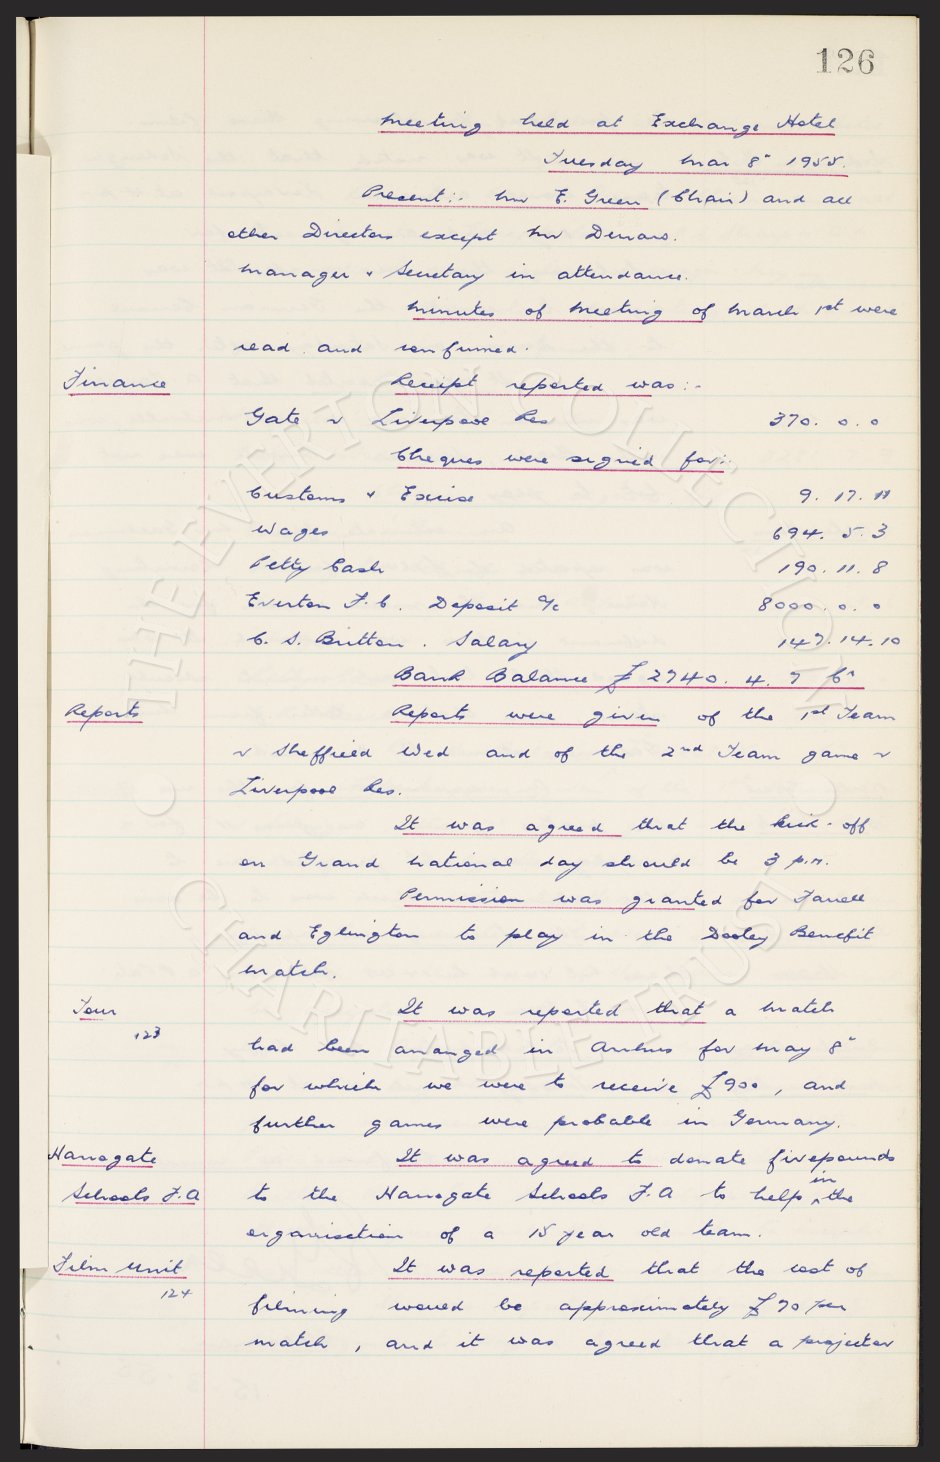 126
Meeting held at Exchange Hotel
Tuesday Mar 8" 1955.
Present:- Mr E. Green (Chair) and all
other Directors except Mr
Manager & Secretary in attendance.
Minutes of Meeting of March 1st were
read and confirmed.
Finance Receipt reported was :-
Gate v Liverpool Res 370. 0. 0
Cheques were signed for:-
Customs & Excise 9. 17. 11
Wages 694. 5. 3
Petty Cash 190. 11. 8
Everton F.C. Deposit a/c 8000. 0. 0
C. S. Britton. Salary 147. 14. 10
Bank Balance £2740. 4. 7 Cr
Reports Reports were given of the 1st Team
v Sheffield Wed and of the 2nd Team game v
Liverpool Res.
It was agreed that the kick-off
on Grand National day should be 3 p.m.
Permission was granted for Farrell
and Eglington to play in the Dooley Benefit
match.
Tour It was reported that a match
123 had been arranged in Arhus for May 8"
for which we were to receive £900, and
further games were probable in Germany.
Harrogate It was agreed to donate five pounds
Schools F.A to the Harrogate Schools F.A to help in the
organisation of a 15 year old team.
Film Unit It was reported that the cost of
124 filming would be approximately £70 per
match, and it was agreed that a projector
© THE EVERTON COLLECTION ©
CHARITABLE TRUST